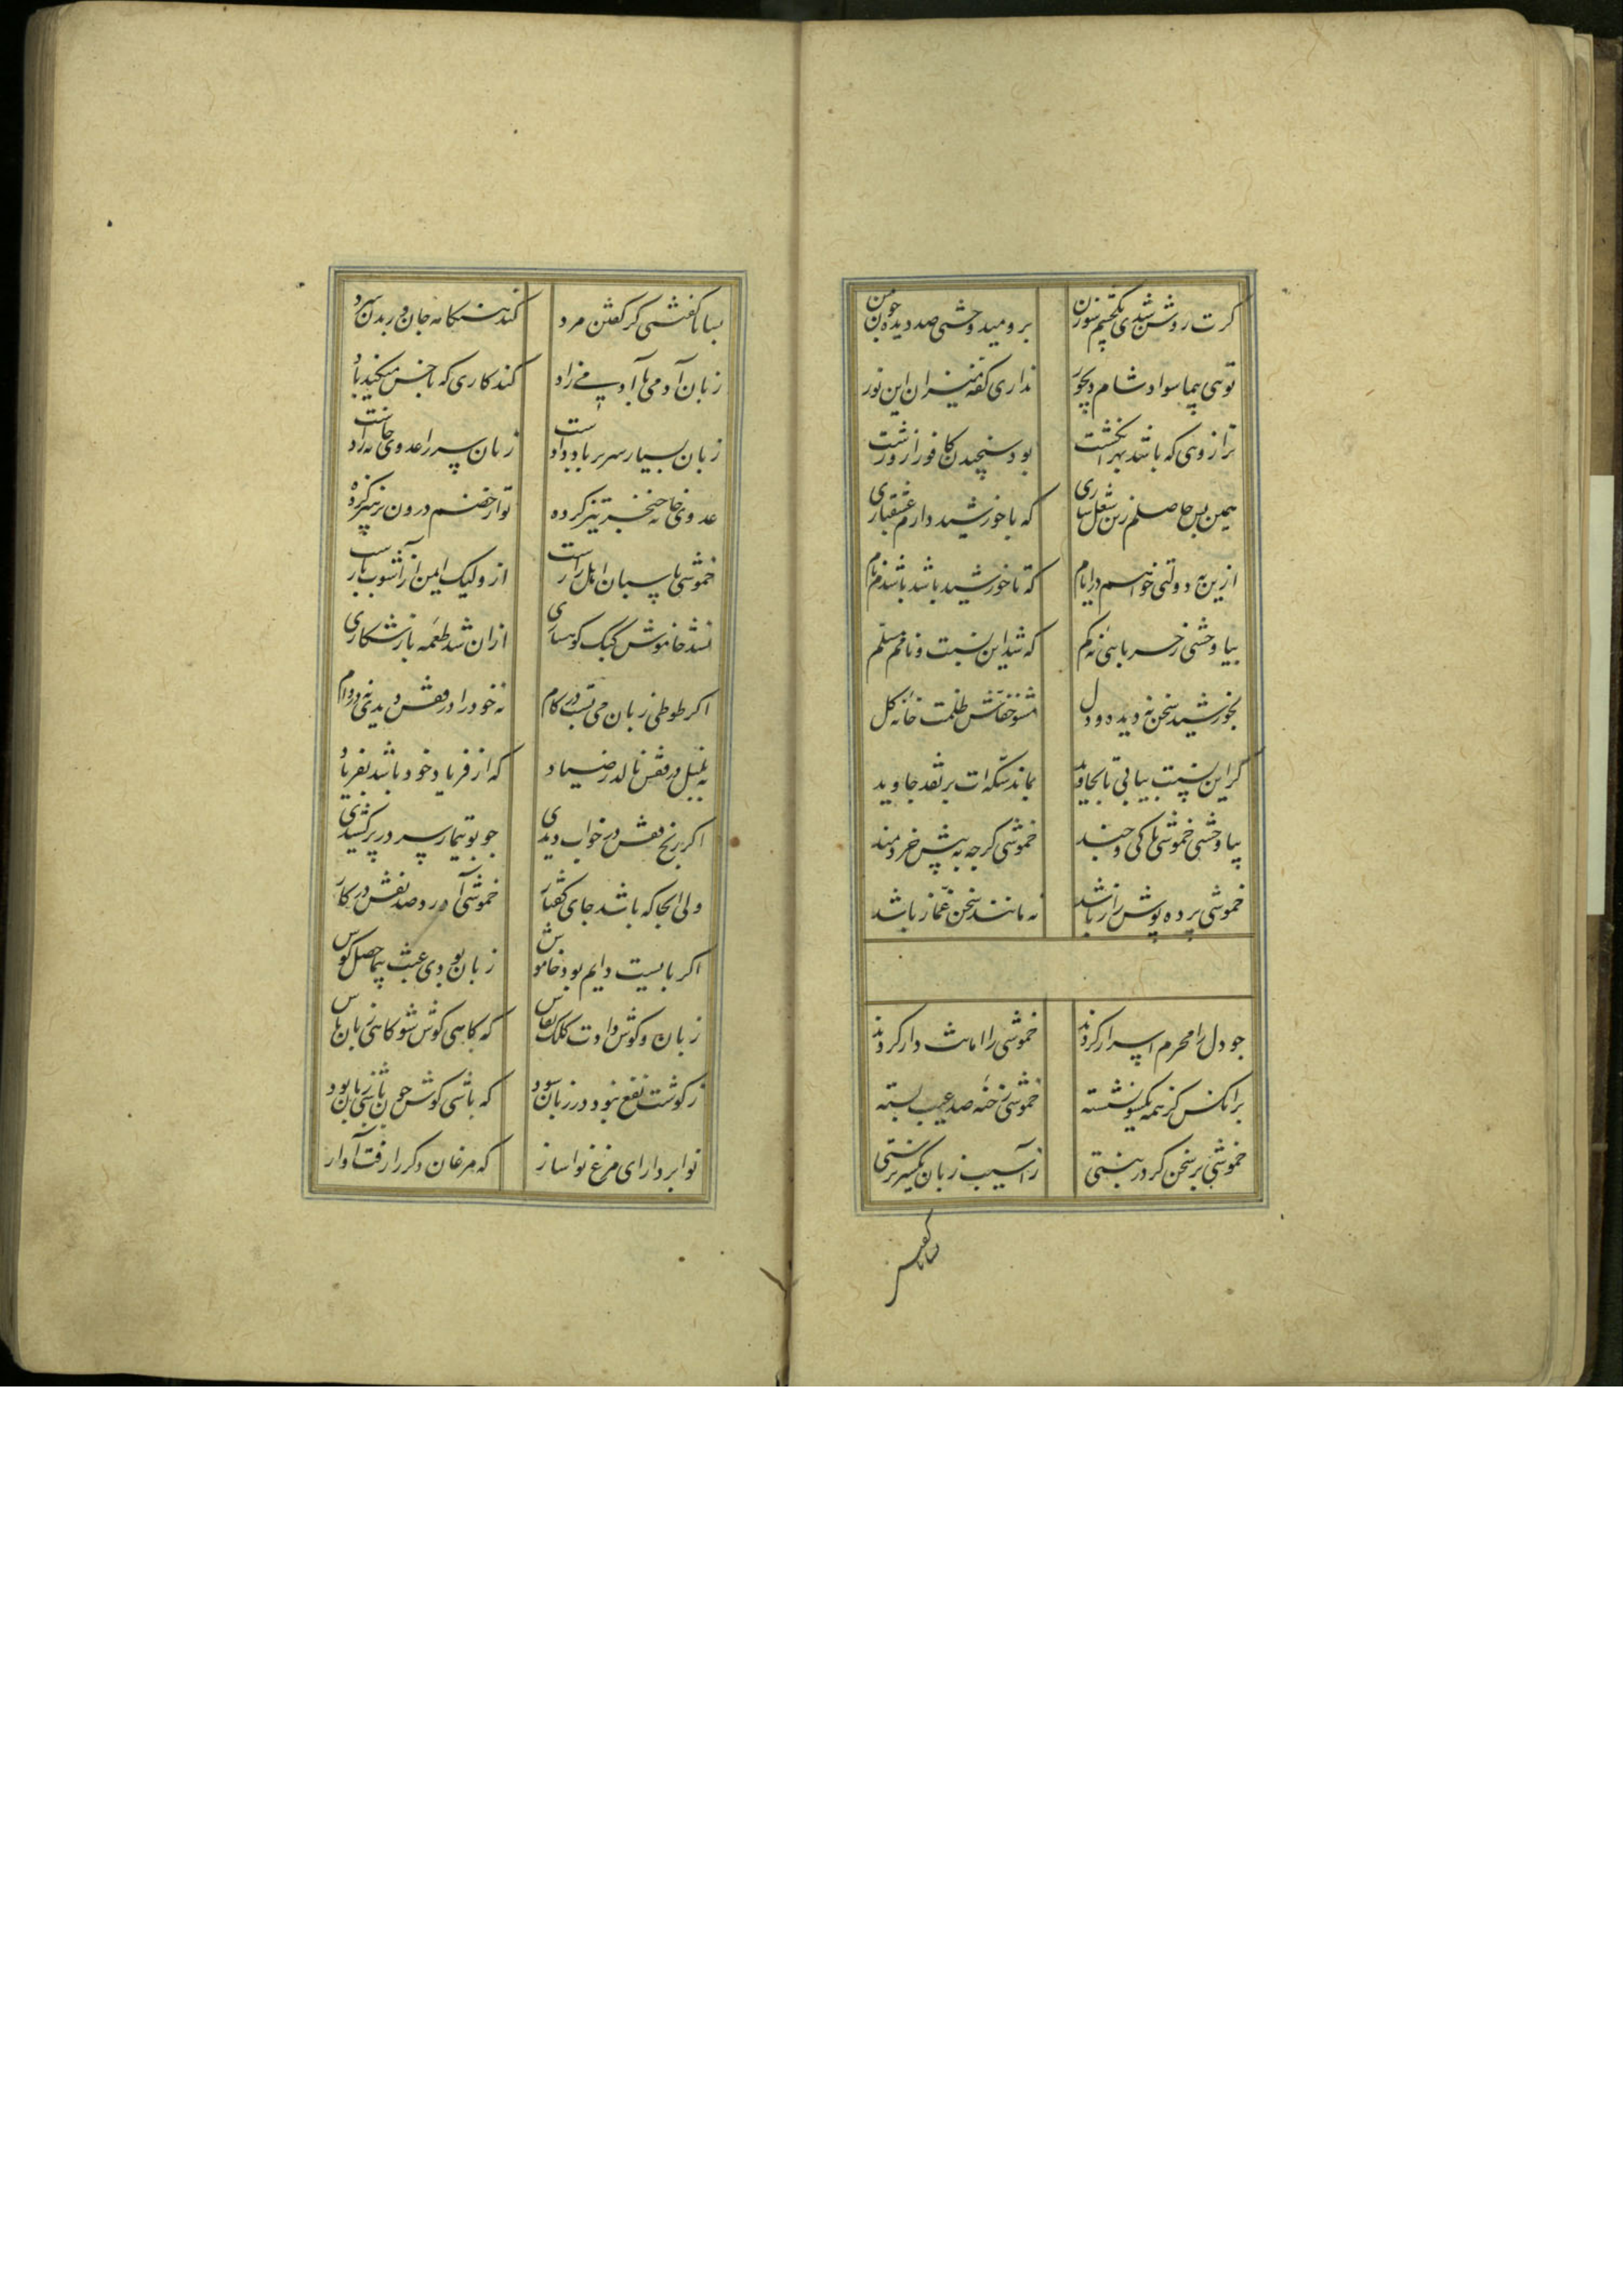 کرت روشن شدی یکچشم سوزن
برو میدوختی صد دیده چون من
توهی پیما سواد شام دیجور
نداری کفه میزان این نور
ترازوئی که باشد بهر انکشت
بود سنجیدن کافور ازو زشت
همین بس حاصلم زین شغل سازی
که با خورشید دارم عشقبازی
ازین به دولتی خواهم در ایام
که تا خورشید باشد باشدم نام
بیا وحشی ز خسر بائی نه کم
که شد این نسبت و نامم مسلم
بخورشید سخن نه دیده و دل
مشو خفاش ظلمت خانه کل
کر این نسبت بیابی تا بجاوید
بماند سکه ات بر نقد جاوید
بیا وحشی خموشی تا کی و چند
خموشی کرچه به پیش خردمند
خموشی پرده پوش راز باشد
نه مانند سخن غماز باشد
چو دل را محرم اسرار کردند
خموشی را امانت دار کردند
بر انکس کز همه یکسو نشسته
خموشی رخنه صد عیب بسته
خموشی بر سخن کر در نبستی
ز آسیب زبان یکسر نرستی
بسا ناکفتنی کز کفتن مرد
کند هنکامه جان در بدن سرد
زبان آدمی با آدمیزاد
کند کاری که با خس میکند باد
زبان بسیار سر بر باد دادست
زبان سر را عدوی خانه زادست
عدوی خانه خنجر تیز کرده
تو از خصم درون پرهیز کرده
خموشی پاسبان اهل رازست
ازو کبک ایمن از آشوب بازست
نشد خاموش کبک کوهساری
از آن شد طعمه باز شکاری
اکر طوطی زبان می بست در کام
نه خود را در قفس دیدی نه در دام
نه بلبل در قفس نالد ز صیاد
که از فریاد خود باشد بفریاد
اکر رنج قفس در خواب دیدی
چو بوتیمار سر در پر کشیدی
ولی انجا که باشد جای کفتار
خموشی آورد صد نقص در کار
اکر بایست دایم بود خاموش
زبان بودی عبث بیحاصل کوش
زبان و کوش دادت کلک نقاش
که کاهی کوش شو کاهی زبان باش
ز کوشت نفع نبود در زبان سود
که باشی کوش چون باید زبان بود
نوا بردار ای مرغ نوا ساز
که مرغان دکر را رفت آواز